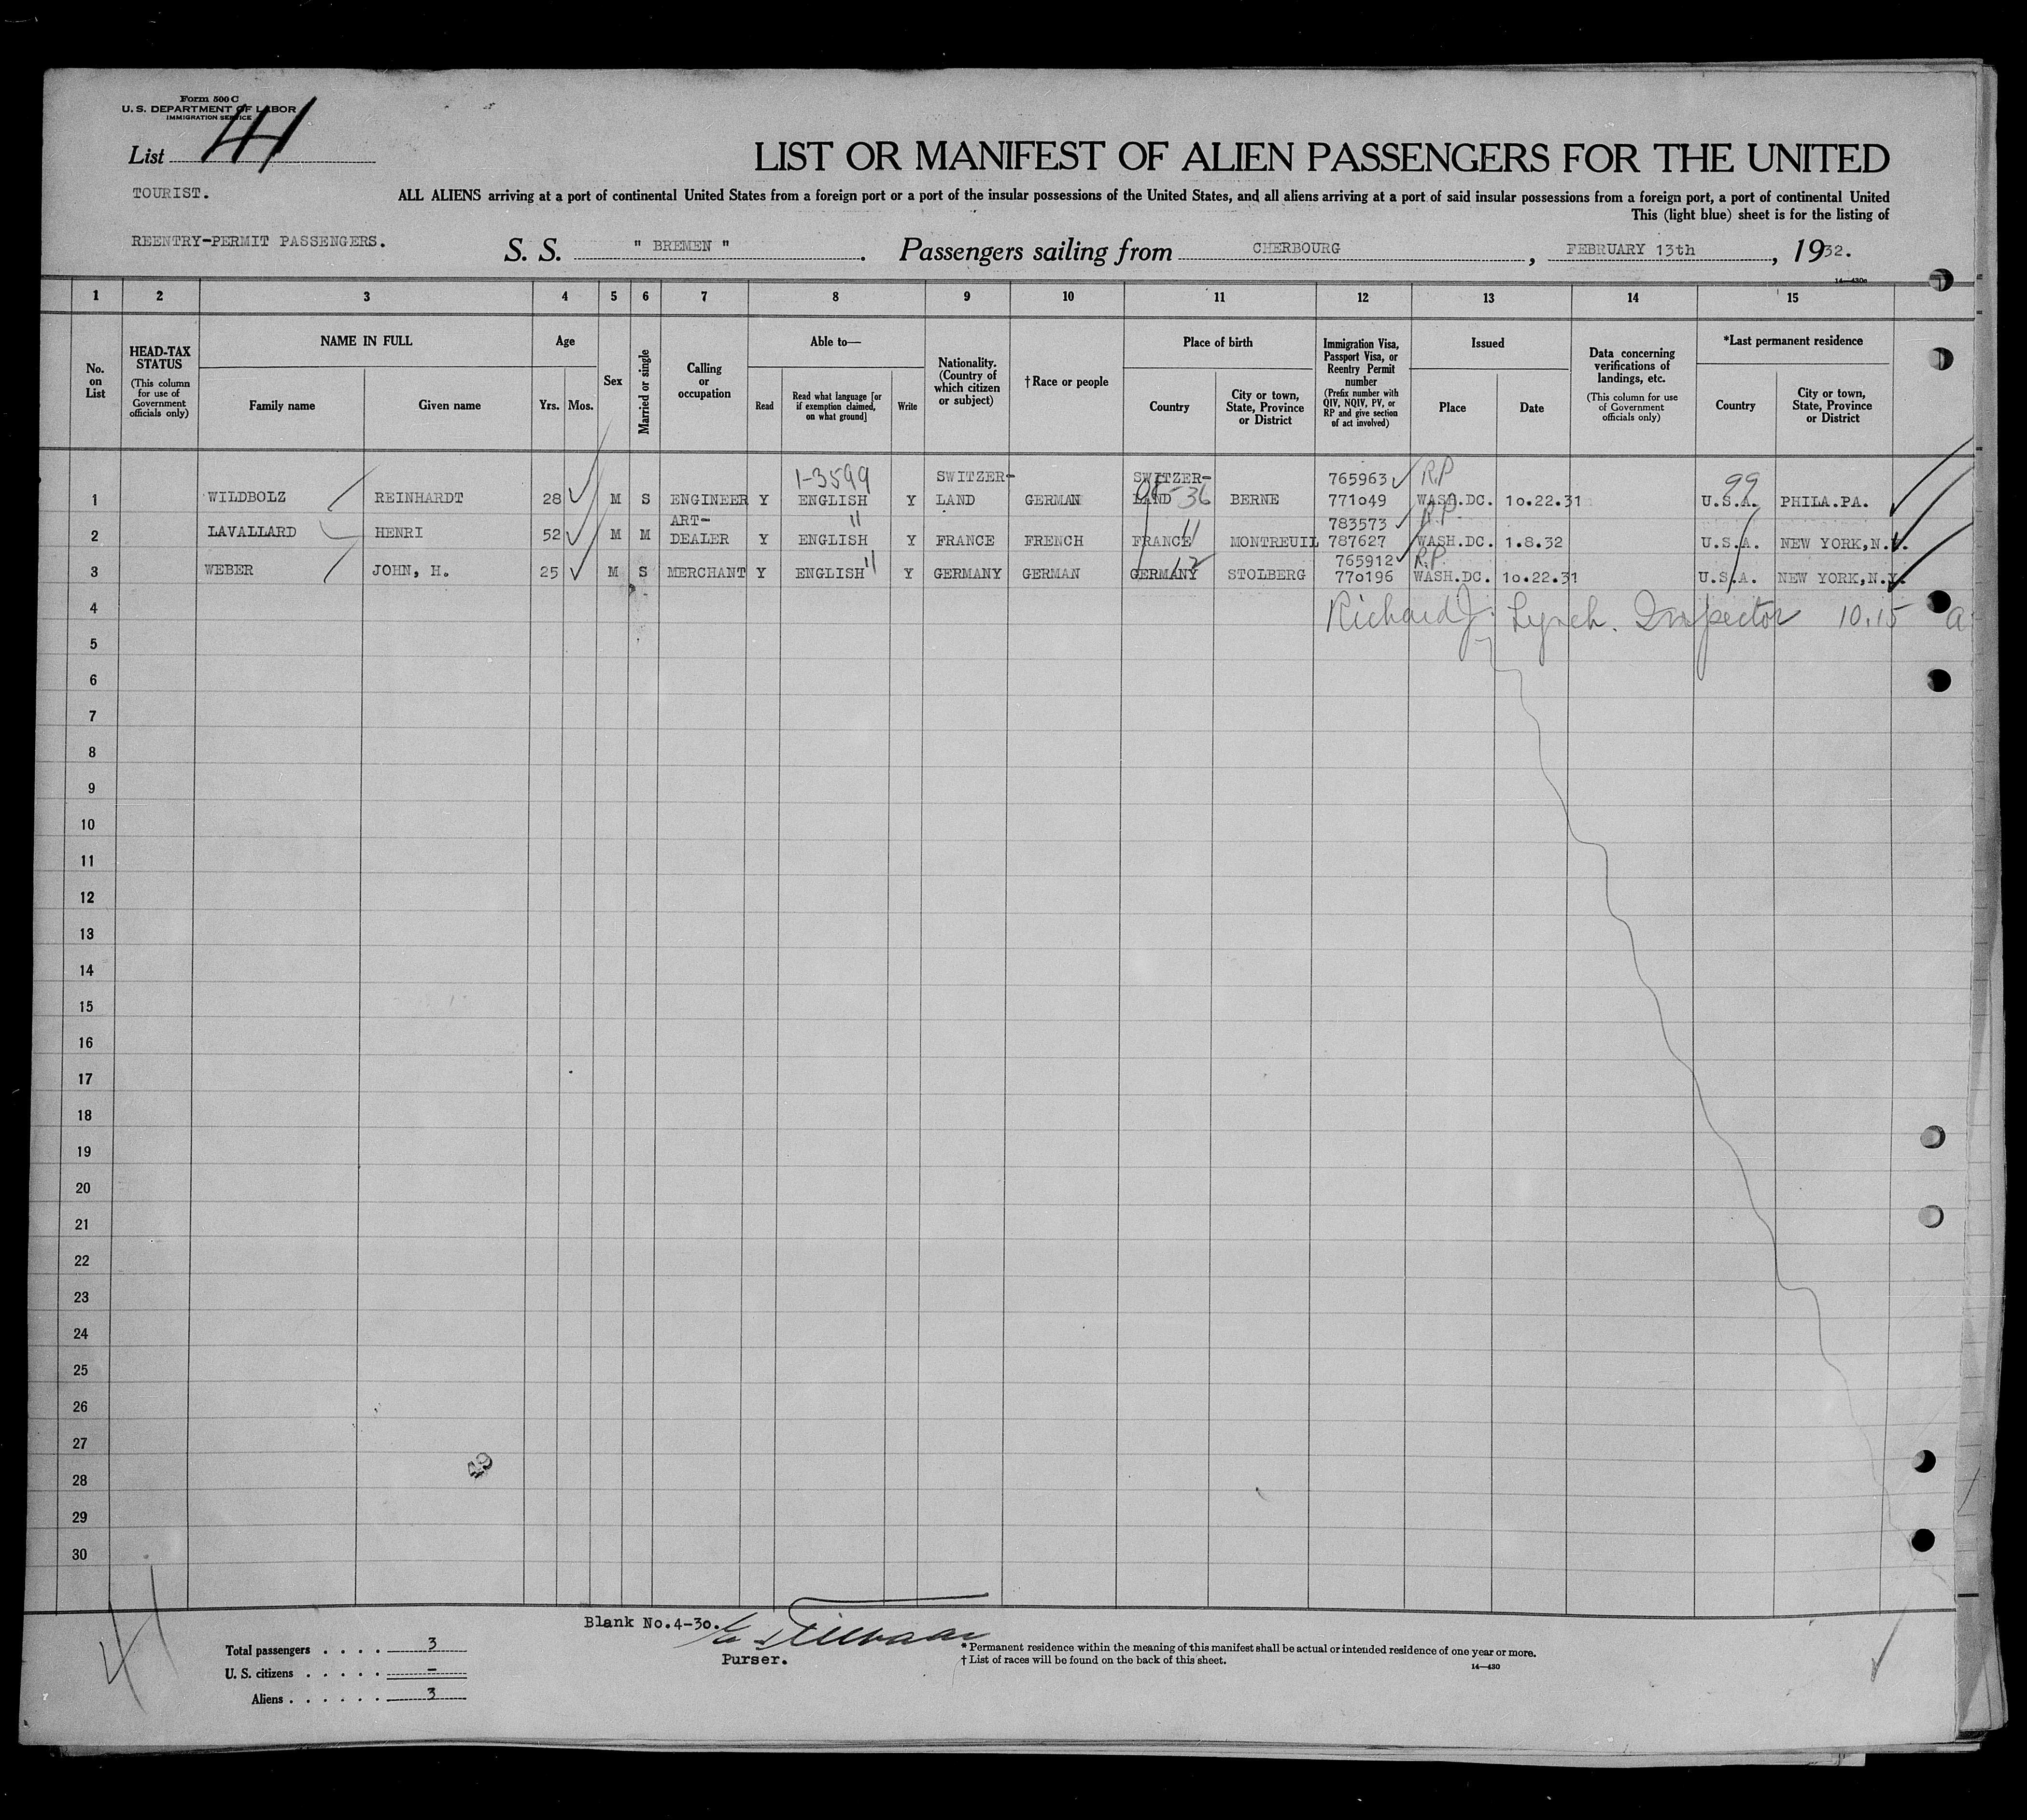 Form 500 C
U. S. DEPARTMENT OF LABOR
IMMIGRATION SERVICE
List 41
LIST OR MANIFEST OF ALIEN PASSENGERS FOR THE UNITED
TOURIST.
ALL ALIENS arriving at a port of continental United States from a foreign port or a port of the insular possessions of the United States, and all aliens arriving at a port of said insular possessions from a foreign port, a port of continental United
This (light blue) sheet is for the listing of
REENTRY-PERMIT PASSENGERS.
S. S. " BREMEN ". Passengers sailing from CHERBOURG, FEBRUARY 13th, 1932.
1 2 3 4 5 6 7 8 9 10 11 12 13 14 15
No. on List
HEAD-TAX STATUS (This column for use of Government officials only)
NAME IN FULL
Family name
Given name
Age
Yrs. Mos.
Sex
Married or single
Calling or occupation
Able to—
Read
Read what language [or if exemption claimed, on what ground]
Write
Nationality. (Country of which citizen or subject)
†Race or people
Place of birth
Country
City or town, State, Province or District
Immigration Visa, Passport Visa, or Reentry Permit number (Prefix number with QIV, NQIV, PV, or RP and give section of act involved)
Issued
Place
Date
Data concerning verifications of landings, etc. (This column for use of Government officials only)
*Last permanent residence
Country
City or town, State, Province or District
1-3599 SWITZER- SWITZER- 765963 R.P 99
1 WILDBOLZ REINHARDT 28 M S ENGINEER Y ENGLISH Y LAND GERMAN LAND 36 BERNE 771049 WASH.DC. 10.22.31 U.S.A. PHILA.PA.
ART- 11 783573 R.P.
2 LAVALLARD HENRI 52 M M DEALER Y ENGLISH Y FRANCE FRENCH FRANCE 11 MONTREUIL 787627 WASH.DC. 1.8.32 U.S.A. NEW YORK,N.Y.
11 12 765912 R.P.
3 WEBER JOHN, H. 25 M S MERCHANT Y ENGLISH Y GERMANY GERMAN GERMANY STOLBERG 770196 WASH.DC. 10.22.31 U.S.A. NEW YORK,N.Y.
4 Richard J. Lynch. Inspector 10.15 a
5
6
7
8
9
10
11
12
13
14
15
16
17
18
19
20
21
22
23
24
25
26
27
28
29
30
Blank No.4-30.
Purser.
41
Total passengers . . . . 3
U. S. citizens . . . . . –
Aliens . . . . . . 3
* Permanent residence within the meaning of this manifest shall be actual or intended residence of one year or more.
† List of races will be found on the back of this sheet.
14—430